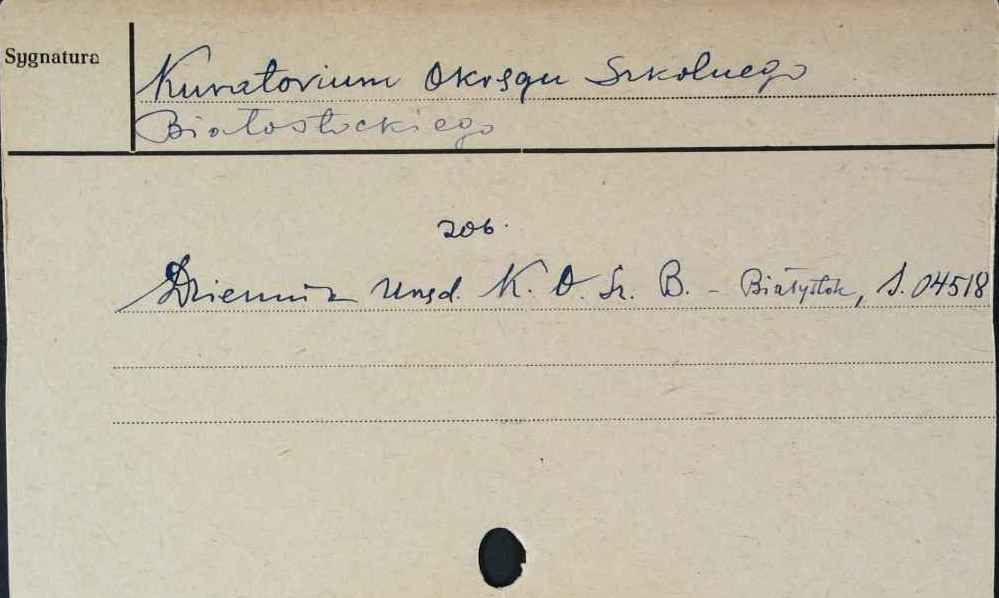 Sygnatura
Kuratorium Okręgu Szkolnego
Białostockiego
zob.
Dziennik Urzęd. K. O. Sz. B. - Białystok, S. 04518